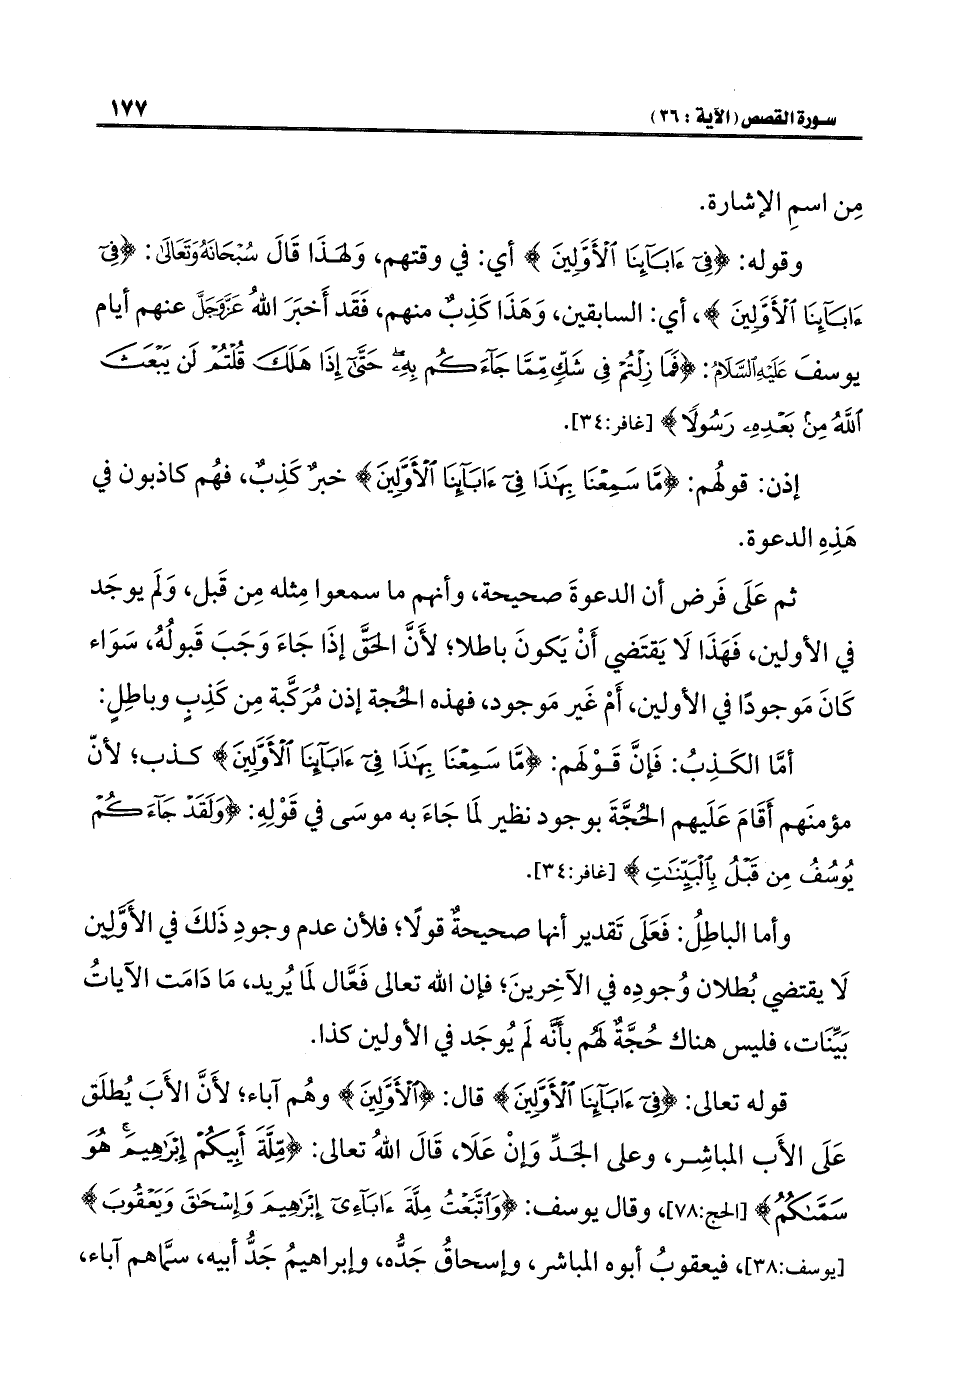 سورة القصص (الآية : ٣٦) ١٧٧
مِن اسمِ الإشارة.
وقوله: ﴿فِيٓ ءَابَآئِنَا ٱلْأَوَّلِينَ﴾ أي: في وقتهم، وَلهذَا قَالَ سُبْحَانَهُ وَتَعَالَىٰ: ﴿فِيٓ
ءَابَآئِنَا ٱلْأَوَّلِينَ﴾، أي: السابقين، وَهَذَا كَذِبٌ منهم، فَقَد أَخبَرَ اللهُ عَزَّوَجَلَّ عنهم أيام
يوسفَ عَلَيْهِ السَّلَامُ: ﴿فَمَا زِلْتُمْ فِي شَكٍّ مِّمَّا جَآءَكُم بِهِۦ ۖ حَتَّىٰٓ إِذَا هَلَكَ قُلْتُمْ لَن يَبْعَثَ
ٱللَّهُ مِنۢ بَعْدِهِۦ رَسُولًا﴾ [غافر:٣٤].
إذن: قولهُم: ﴿مَّا سَمِعْنَا بِهَٰذَا فِيٓ ءَابَآئِنَا ٱلْأَوَّلِينَ﴾ خبرٌ كَذِبٌ، فهُم كاذبون في
هَذِهِ الدعوة.
ثم عَلَى فَرض أن الدعوةَ صحيحة، وأنهم ما سمعوا مِثله مِن قَبل، وَلَم يوجَد
في الأولين، فَهَذَا لَا يَقتَضي أَنْ يَكونَ باطلا؛ لأنَّ الحَقَّ إذَا جَاءَ وَجَبَ قَبولُهُ، سَوَاء
كَانَ مَوجودًا في الأولين، أَمْ غَير مَوجود، فهذه الحُجة إذن مُرَكَّبة مِن كَذِبٍ وباطِلٍ:
أمَّا الكَذِبُ: فَإنَّ قَوْلهَم: ﴿مَّا سَمِعْنَا بِهَٰذَا فِيٓ ءَابَآئِنَا ٱلْأَوَّلِينَ﴾ كذب؛ لأنّ
مؤمنَهم أَقَامَ عَلَيهم الحُجَّةَ بوجود نظير لمَا جَاءَ به موسَى في قَوْلِهِ: ﴿وَلَقَدْ جَآءَكُمْ
يُوسُفُ مِن قَبْلُ بِٱلْبَيِّنَٰتِ﴾ [غافر:٣٤].
وأما الباطِلُ: فَعَلَى تَقدير أنها صحيحةٌ قولًا؛ فلأن عدم وجودِ ذَلكَ في الأَوَّلِين
لَا يقتضي بُطلان وُجودِه في الآخِرينَ؛ فإن الله تعالى فَعَّال لمَا يُريد، مَا دَامَت الآياتُ
بَيِّنَات، فليس هناك حُجَّةٌ لهُم بأَنَّه لَم يُوجَد في الأولين كذا.
قوله تعالى: ﴿فِيٓ ءَابَآئِنَا ٱلْأَوَّلِينَ﴾ قال: ﴿ٱلْأَوَّلِينَ﴾ وهُم آباء؛ لأَنَّ الأَبَ يُطلَق
عَلَى الأَب المباشِر، وعلى الجَدِّ وَإنْ عَلَا، قَالَ اللهُ تعالى: ﴿مِّلَّةَ أَبِيكُمْ إِبْرَٰهِيمَ ۚ هُوَ
سَمَّىٰكُمُ﴾ [الحج:٧٨]، وقال يوسف: ﴿وَٱتَّبَعْتُ مِلَّةَ ءَابَآءِيٓ إِبْرَٰهِيمَ وَإِسْحَٰقَ وَيَعْقُوبَ﴾
[يوسف:٣٨]، فيعقوبُ أبوه المباشر، وإسحاقُ جَدُّه، وإبراهيمُ جَدُّ أبيه، سمَّاهم آباء،